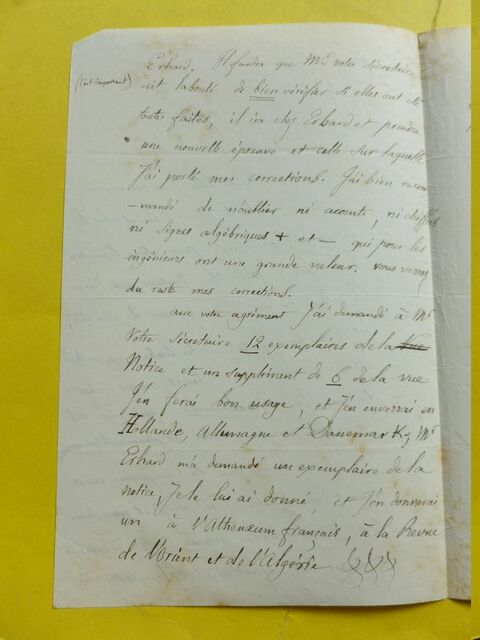 Erhard. Il faudra que Mr. votre Secrétaire
(C'est important)
ait la bonté de bien vérifier si elles ont été
toutes faites, il ira chez Erhard et prendra
une nouvelle épreuve et celle sur laquelle
J'ai porté mes corrections. J'ai bien recom
-mandé de n'oublier ni accents, ni chiffres
ni signes algébriques + et - qui pour les
ingénieurs ont une grande valeur. vous verrez
du reste mes corrections.
avec votre agrément J'ai demandé à Mr
Votre Sécretaire 12 exemplaires de la vue
Notice et un supplément de 6 de la vue
J'en ferai bon usage, et J'en enverrai en
Hollande, Allemagne et Danemark, Mr
Erhard m'a demandé un exemplaire de la
notice, Je le lui ai donné et J'en donnerai
un à l'Athenœum français, à la Revue
de l'Orient et de l'Algérie